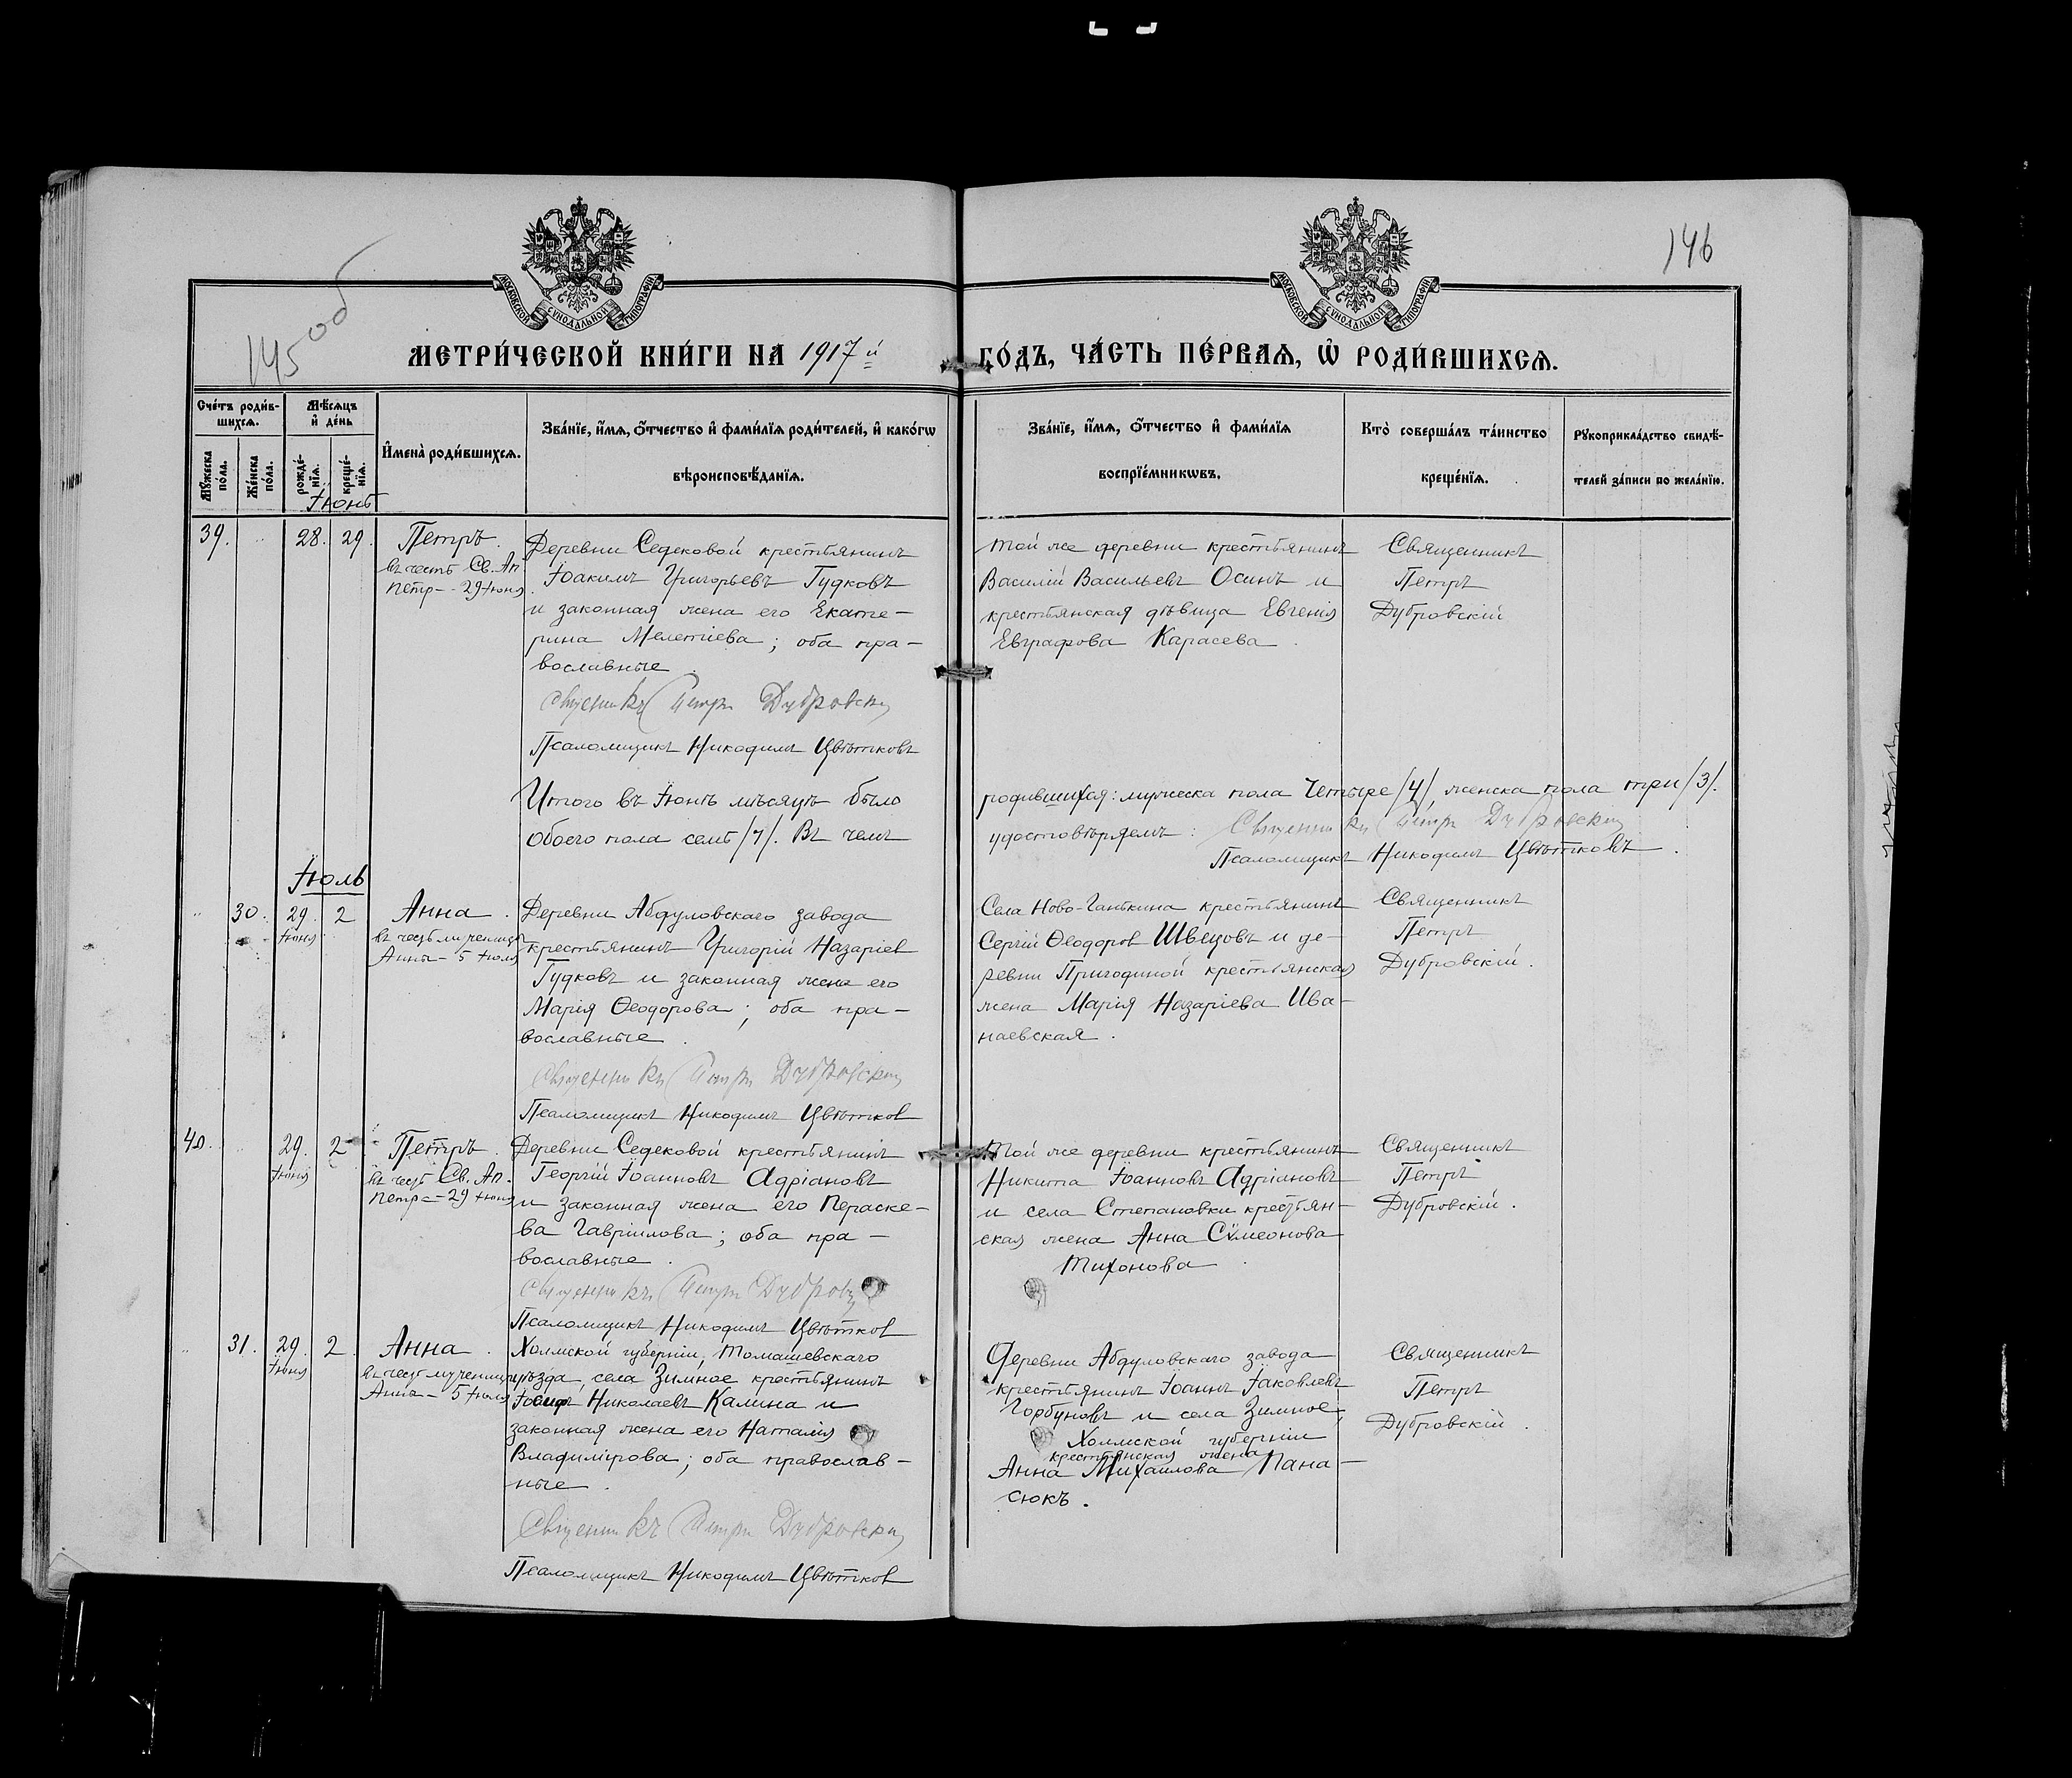 146
145 об
МОСКОВСКОЙ СѴНОДАЛЬНОЙ ТИПОГРАФІИ
МОСКОВСКОЙ СѴНОДАЛЬНОЙ ТИПОГРАФІИ
МЕТРИ́ЧЕСКОЙ КНИ́ГИ НА 1917 й ГО́ДЪ, ЧА́СТЬ ПЕ́РВАѦ, Ѡ҆ РОДИ́ВШИХСѦ.
Сче́тъ роди́в-
шихсѧ.
Мꙋ́жеска по́ла.
Же́нска по́ла.
Мѣ́сѧцъ
и҆ де́нь
рожде́-
нїѧ.
креще́-
нїѧ.
И҆мена̀ роди́вшихсѧ.
Зва́нїе, и҆́мѧ, ѻ҆́тчество и҆ фами́лїѧ роди́телей, и҆ како́гѡ
вѣроисповѣ́данїѧ.
Зва́нїе, и҆́мѧ, ѻ҆́тчество и҆ фами́лїѧ
воспрїе́мникѡвъ.
Кто̀ соверша́лъ та́инство
креще́нїѧ.
Рꙋкоприкла́дство свидѣ́-
телей за́писи по жела́нїю.
Іюнь
39. 28. 29. Петръ.
въ честь Св. Ап.
Петр— 29 іюня.
Деревни Седековой крестьянинъ
Іоакимъ Григорьевъ Гудковъ
и законная жена его Екате-
рина Мелетіева; оба пра-
вославные.
Священникъ Петръ Дубровскій
Псаломщикъ Никодимъ Цвѣтковъ
Той же деревни крестьянинъ
Василій Васильевъ Осинъ и
крестьянская дѣвица Евгенія
Евграфова Карасева.
Священникъ
Петръ
Дубровскій
Итого въ Іюнѣ мѣсяцѣ было родившихся: мужеска пола Четыре /4/, женска пола три /3/.
Обоего пола семь /7/. Въ чемъ удостовѣряемъ: Священникъ Петръ Дубровскій
Псаломщикъ Никодимъ Цвѣтковъ.
Іюль
30. 29. 2 Анна.
іюня
въ честь мученицы
Анны— 5 іюля
Деревни Абдуловскаго завода
крестьянинъ Григорій Назаріев
Гудковъ и законная жена его
Марія Ѳеодорова; оба пра-
вославные.
Священникъ Петръ Дубровскій
Псаломщикъ Никодимъ Цвѣтков
Села Ново-Ганькина крестьянинъ
Сергій Ѳеодоров Швецовъ и де-
ревни Пригодиной крестьянская
жена Марія Назаріева Ива-
наевская.
Священникъ
Петръ
Дубровскій.
40. 29. 2 Петръ.
іюня
въ честь Св. Ап.
Петр— 29 іюня
Деревни Седековой крестьянинъ
Георгій Іоанновъ Адріановъ
и законная жена его Параске-
ва Гавріилова; оба пра-
вославные.
Священникъ Петръ Дубровс
Псаломщикъ Никодимъ Цвѣтков
Той же деревни крестьянинъ
Никита Іоанновъ Адріановъ
и села Степановки крестьян-
ская жена Анна Сѵмеонова
Тихонова.
Священникъ
Петръ
Дубровскій.
31. 29. 2. Анна.
іюня
въ честь мученицы
Анны— 5 іюля
Холмской губерніи, Томашевскаго
уѣзда, села Зимное крестьянинъ
Іосиф Николаевъ Калина и
законная жена его Наталія
Владимірова; оба православ-
ные.
Священникъ Петръ Дубровскій
Псаломщикъ Никодимъ Цвѣтков
Деревни Абдуловскаго завода
крестьянинъ Іоаннъ Іаковлевъ
Горбуновъ и села Зимное,
Холмской губерніи
крестьянская жена
Анна Михаилова Пана-
сюкъ.
Священникъ
Петръ
Дубровскій.